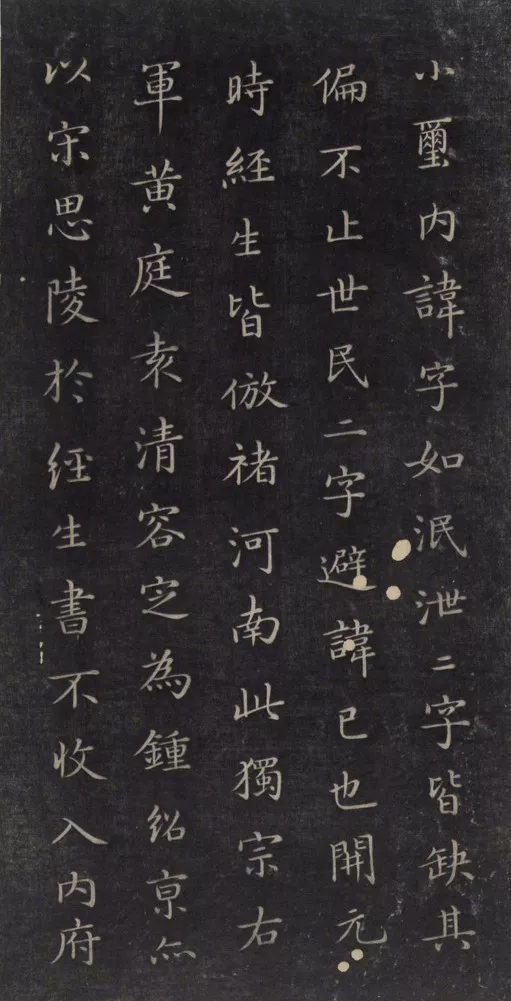 小璽内諱字如泯泄二字皆缺其
偏不止世民二字避諱已也開元
時經生皆倣褚河南此獨宗右
軍黄庭袁清容定為鍾紹京亦
以宋思陵於經生書不收入内府